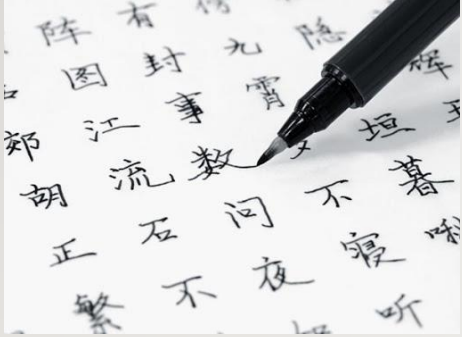 阵 有
图 封 九 隐
郊 江 事 霄 辉
胡 流 数 垣
正 石 问 不 暮
繁 不 夜 寝 啾
听